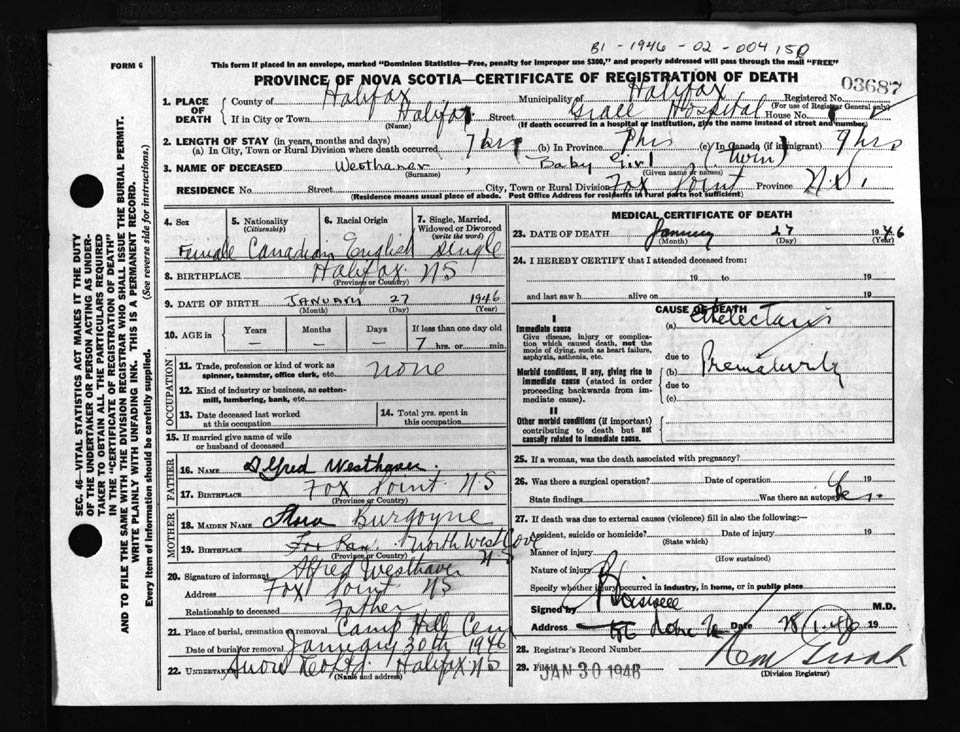 B1 - 1946 - 02 - 004150
FORM 6
This form if placed in an envelope, marked "Dominion Statistics—Free, penalty for improper use $300," and properly addressed will pass through the mail "FREE"
PROVINCE OF NOVA SCOTIA—CERTIFICATE OF REGISTRATION OF DEATH
03687
1. PLACE OF DEATH County of Halifax Municipality of Halifax Registered No. (For use of Registrar General only)
If in City or Town Halifax (Name) Street Grace Hospital House No.
(If death occurred in a hospital or institution, give the name instead of street and number)
2. LENGTH OF STAY (in years, months and days)
(a) In City, Town or Rural Division where death occurred 7 hrs (b) In Province 7 hrs (c) In Canada (if immigrant) 9 hrs
3. NAME OF DECEASED Westhaver, (Surname) Baby Girl (Twin) (Given name or names)
RESIDENCE No. Street City, Town or Rural Division Fox Point Province N.S.
(Residence means usual place of abode. Post Office Address for residents in rural parts not sufficient)
4. Sex Female
5. Nationality (Citizenship) Canadian
6. Racial Origin English
7. Single, Married, Widowed or Divorced (write the word) Single
8. BIRTHPLACE Halifax NS (Province or Country)
9. DATE OF BIRTH JANUARY 27 1946
(Month) (Day) (Year)
10. AGE in Years — Months — Days — If less than one day old 7 hrs. or min.
OCCUPATION
11. Trade, profession or kind of work as spinner, teamster, office clerk, etc. none
12. Kind of industry or business, as cotton-mill, lumbering, bank, etc.
13. Date deceased last worked at this occupation
14. Total yrs. spent in this occupation
15. If married give name of wife or husband of deceased
FATHER
16. NAME Alfred Westhaver.
17. BIRTHPLACE Fox Point N.S (Province or Country)
MOTHER
18. MAIDEN NAME Flora Burgoyne
19. BIRTHPLACE North West Cove N.S (Province or Country)
20. Signature of informant Alfred Westhaver
Address Fox Point NS
Relationship to deceased Father
21. Place of burial, cremation or removal Camp Hill Cem
Date of burial or removal January 30th 1946
22. UNDERTAKER Snow & Co Ltd. Halifax NS
(Name and address)
MEDICAL CERTIFICATE OF DEATH
23. DATE OF DEATH January 27 1946
(Month) (Day) (Year)
24. I HEREBY CERTIFY that I attended deceased from:
19 to 19
and last saw h alive on 19
CAUSE OF DEATH
I
Immediate cause
Give disease, injury or complication which caused death, not the mode of dying, such as heart failure, asphyxia, asthenia, etc.
(a) Atelectasis
due to
Morbid conditions, if any, giving rise to immediate cause (stated in order proceeding backwards from immediate cause).
(b) Prematurity
due to
(c)
II
Other morbid conditions (if important) contributing to death but not causally related to immediate cause.
25. If a woman, was the death associated with pregnancy?
26. Was there a surgical operation? Date of operation 19
State findings Was there an autopsy? Yes.
27. If death was due to external causes (violence) fill in also the following:—
Accident, suicide or homicide? (State which) Date of injury 19
Manner of injury (How sustained)
Nature of injury
Specify whether injury occurred in industry, in home, or in public place
Signed by M.D.
Address Date 28/1/46 19
28. Registrar's Record Number
29. Filed JAN 30 1946
(Division Registrar)
SEC. 46—VITAL STATISTICS ACT MAKES IT THE DUTY
OF THE UNDERTAKER OR PERSON ACTING AS UNDER-
TAKER TO OBTAIN ALL THE PARTICULARS REQUIRED
IN THE "CERTIFICATE OF REGISTRATION OF DEATH"
AND TO FILE THE SAME WITH THE DIVISION REGISTRAR WHO SHALL ISSUE THE BURIAL PERMIT.
WRITE PLAINLY WITH UNFADING INK. THIS IS A PERMANENT RECORD.
Every item of Information should be carefully supplied. (See reverse side for instructions.)